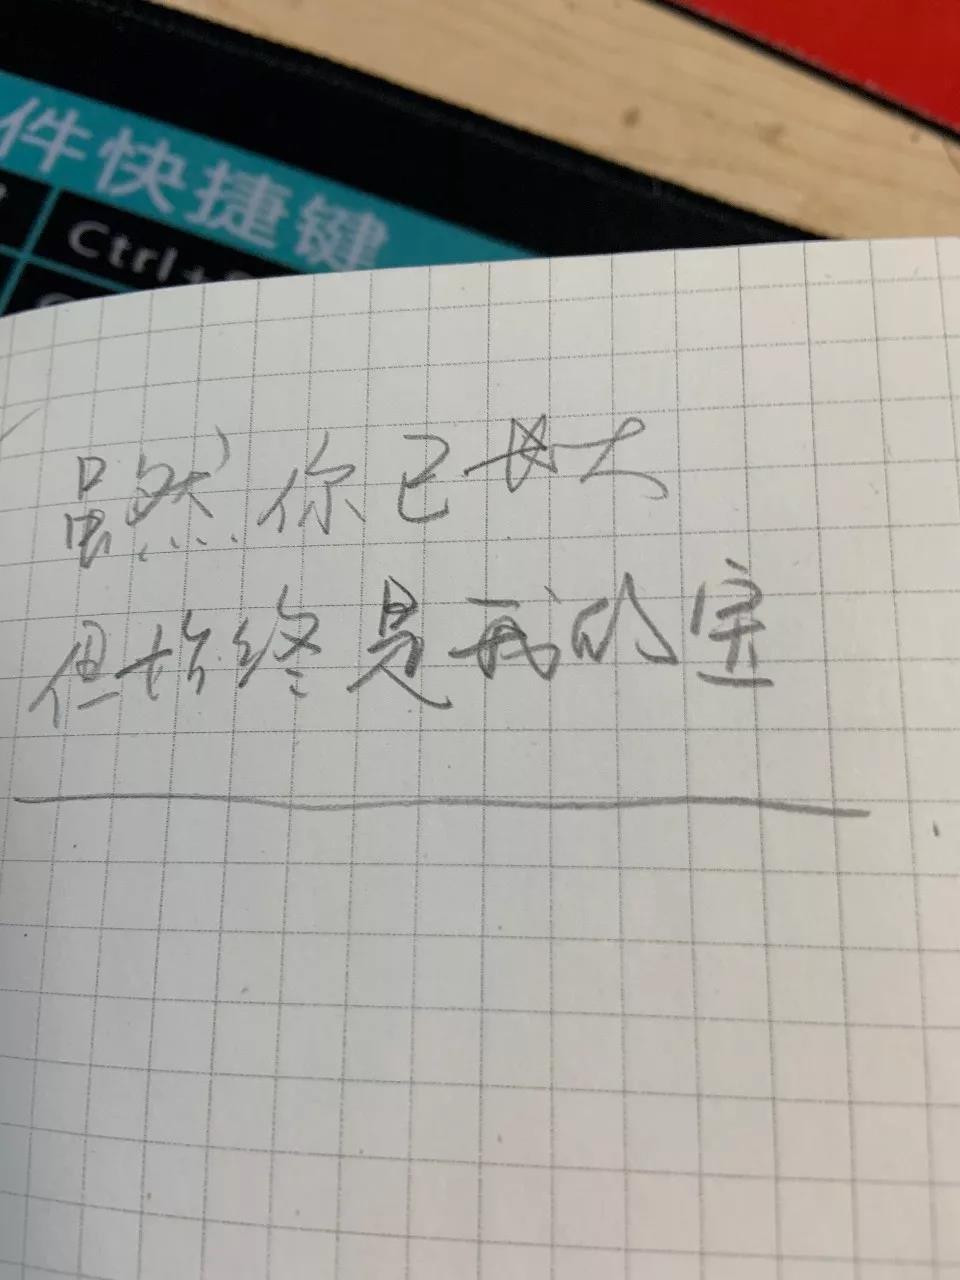 件快捷键
Ctrl+
虽然你已长大
但始终是我的宝